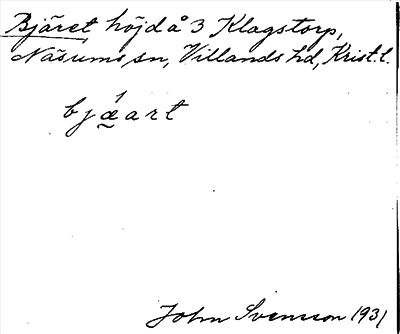 Bjäret höjd å 3 Klagstorp,
Näsums sn, Villands hd, Krist. l.
bjǽart
John Svensson 1931